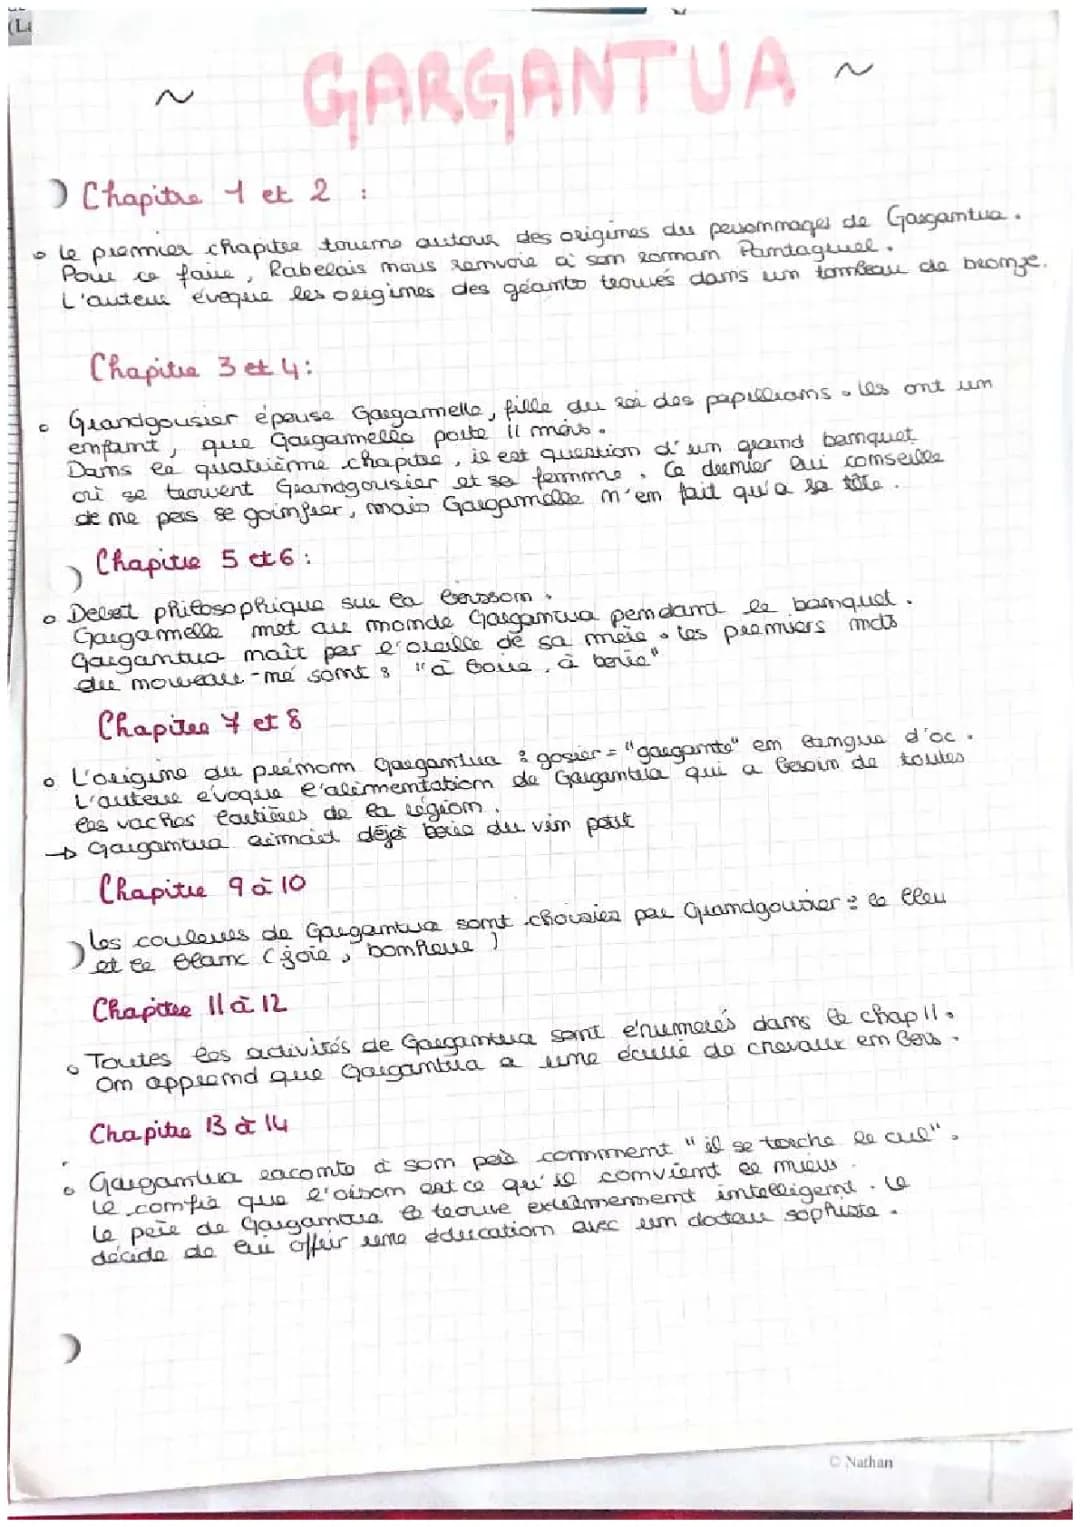 (Le
~ GARGANTUA ~
Chapitre 1 et 2 :
Le premier chapitre tourne autour des origines du personnages de Gargantua.
Pour ce faire, Rabelais nous renvoie à son roman Pantagruel.
L'auteur évoque les origines des géants trouvés dans un tombeau de bronze.
Chapitre 3 et 4 :
Grandgousier épouse Gargamelle, fille du roi des papillions. Ils ont un
enfant, que Gargamelle porte 11 mois.
Dans le quatrième chapitre, il est question d'un grand banquet
où se trouvent Grandgousier et sa femme. Ce dernier lui conseille
de ne pas se goinfrer, mais Gargamelle n'en fait qu'à sa tête.
Chapitre 5 et 6 :
Debat philosophique sur la boisson.
Gargamelle met au monde Gargantua pendant le banquet.
Gargantua naît par l'oreille de sa mère. Les premiers mots
du nouveau-né sont : "à boire, à boire"
Chapitre 7 et 8
L'origine du prénom Gargantua : gosier = "gargante" en langue d'oc.
L'auteur évoque l'alimentation de Gargantua qui a besoin de toutes
les vaches laitières de la région.
→ Gargantua aimait déjà boire du vin petit
Chapitre 9 à 10
Les couleurs de Gargantua sont choisies par Grandgousier : le bleu
et le blanc (joie, bonheur)
Chapitre 11 à 12
Toutes les activités de Gargantua sont énumérés dans le chap 11.
On apprend que Gargantua a une écurie de chevaux en bois.
Chapitre 13 à 14
Gargantua raconte à son père comment "il se torche le cul".
Le confie que l'oison est ce qu'il convient le mieux.
Le père de Gargantua le trouve extrêmement intelligent. Il
décide de lui offrir une éducation avec un docteur sophiste.
© Nathan